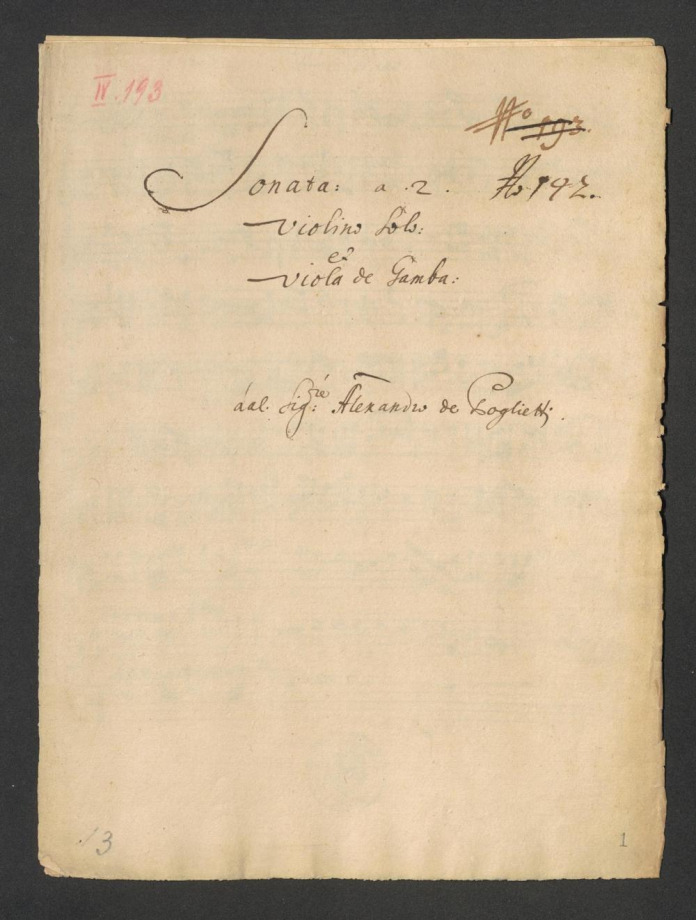 IV. 193
No 193.
Sonata: a .2. No 142.
Violino Solo:
et
Viola de Gamba:
áal. Sig:re Alexandro de Poglietti.
13
1